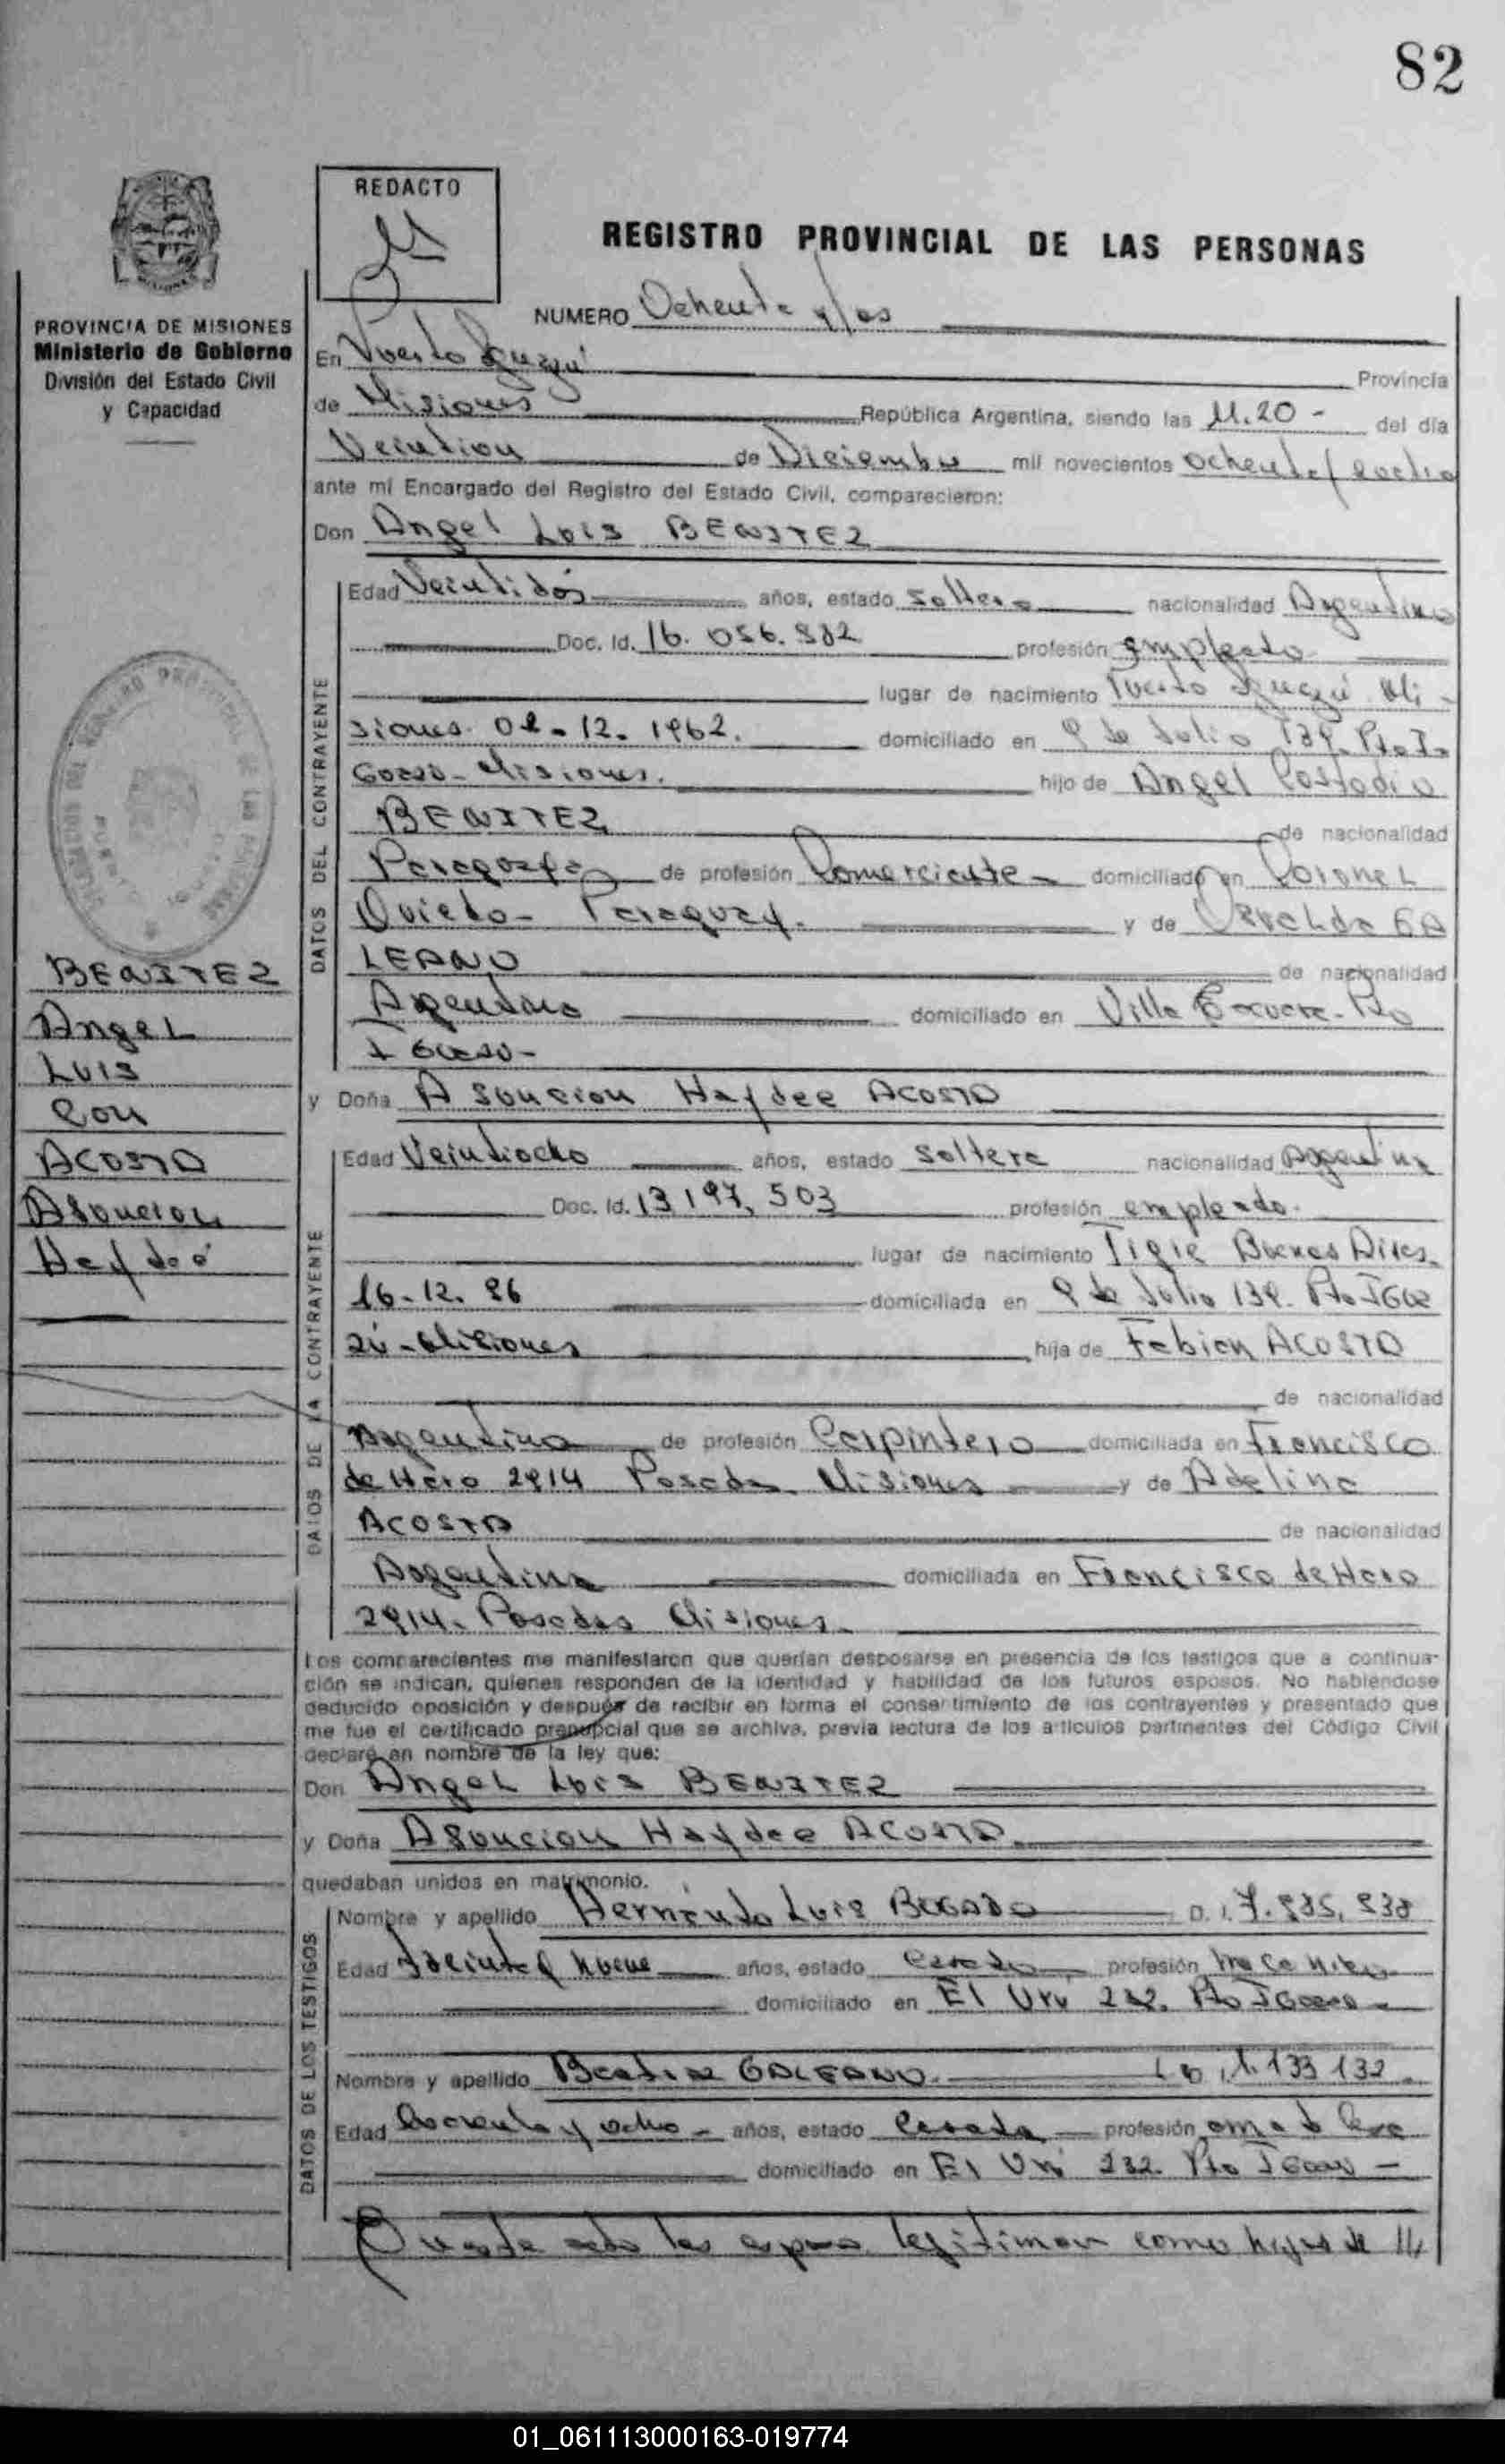 82
REDACTO
REGISTRO PROVINCIAL DE LAS PERSONAS
PROVINCIA DE MISIONES
Ministerio de Gobierno
División del Estado Civil
y Capacidad
NUMERO Ochenta y dos
En Puerto Iguazú Provincia
de Misiones República Argentina, siendo las 11.20 - del día
de Diciembre mil novecientos ochenta y
ante mi Encargado del Registro del Estado Civil, comparecieron:
Don Angel Luis BENITEZ
DATOS DEL CONTRAYENTE
Edad Veintidós años, estado soltero nacionalidad Argentino
Doc. Id. 16. 056. profesión empleado
lugar de nacimiento Puerto Iguazú Mi-
siones. 02-12-1962. domiciliado en 9 de Julio 139. Pto. I-
Misiones. hijo de Angel Custodio
BENITEZ de nacionalidad
Paraguaya de profesión Comerciante - domiciliado en Coronel
Oviedo - Paraguay. y de GA
LEANO de nacionalidad
Argentina domiciliado en Villa Pto
y Doña Asuncion Haydee ACOSTA
BENITEZ
Angel
Luis
con
ACOSTA
Asuncion
Haydeé
DATOS DE LA CONTRAYENTE
Edad Veintiocho años, estado soltera nacionalidad Argentina
Doc. Id. 13.197.503 profesión empleada.
lugar de nacimiento Tigre Buenos Aires.
16-12. domiciliada en 9 de Julio 139. Pto IGua
zú - Misiones hija de Fabian ACOSTA
de nacionalidad
Argentina de profesión Carpintero domiciliada en Francisco
de Haro 2914 Posadas Misiones y de Adelina
ACOSTA de nacionalidad
Argentina domiciliada en Francisco de Haro
2914. Posadas Misiones.
Los comparecientes me manifestaron que querían desposarse en presencia de los testigos que a continua-
ción se indican, quienes responden de la identidad y habilidad de los futuros esposos. No habiéndose
deducido oposición y después de recibir en forma el consentimiento de los contrayentes y presentado que
me fue el certificado prenupcial que se archiva, previa lectura de los artículos pertinentes del Código Civil
declaré en nombre de la ley que:
Don Angel Luis BENITEZ
y Doña Asuncion Haydee ACOSTA.
quedaban unidos en matrimonio.
DATOS DE LOS TESTIGOS
Nombre y apellido Luis BOGADO
Edad treinta y nueve años, estado casado profesión
domiciliado en El Urú 232. Pto
Nombre y apellido Beatriz GALEANO. 133 132
Edad y ocho - años, estado casada profesión ama d casa
domiciliado en El Urú 232. Pto
legitiman como hijos de
01_061113000163-019774